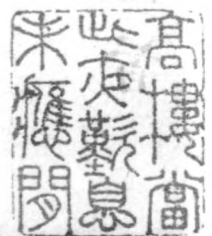 高樓當
此夜歎息
未應閒